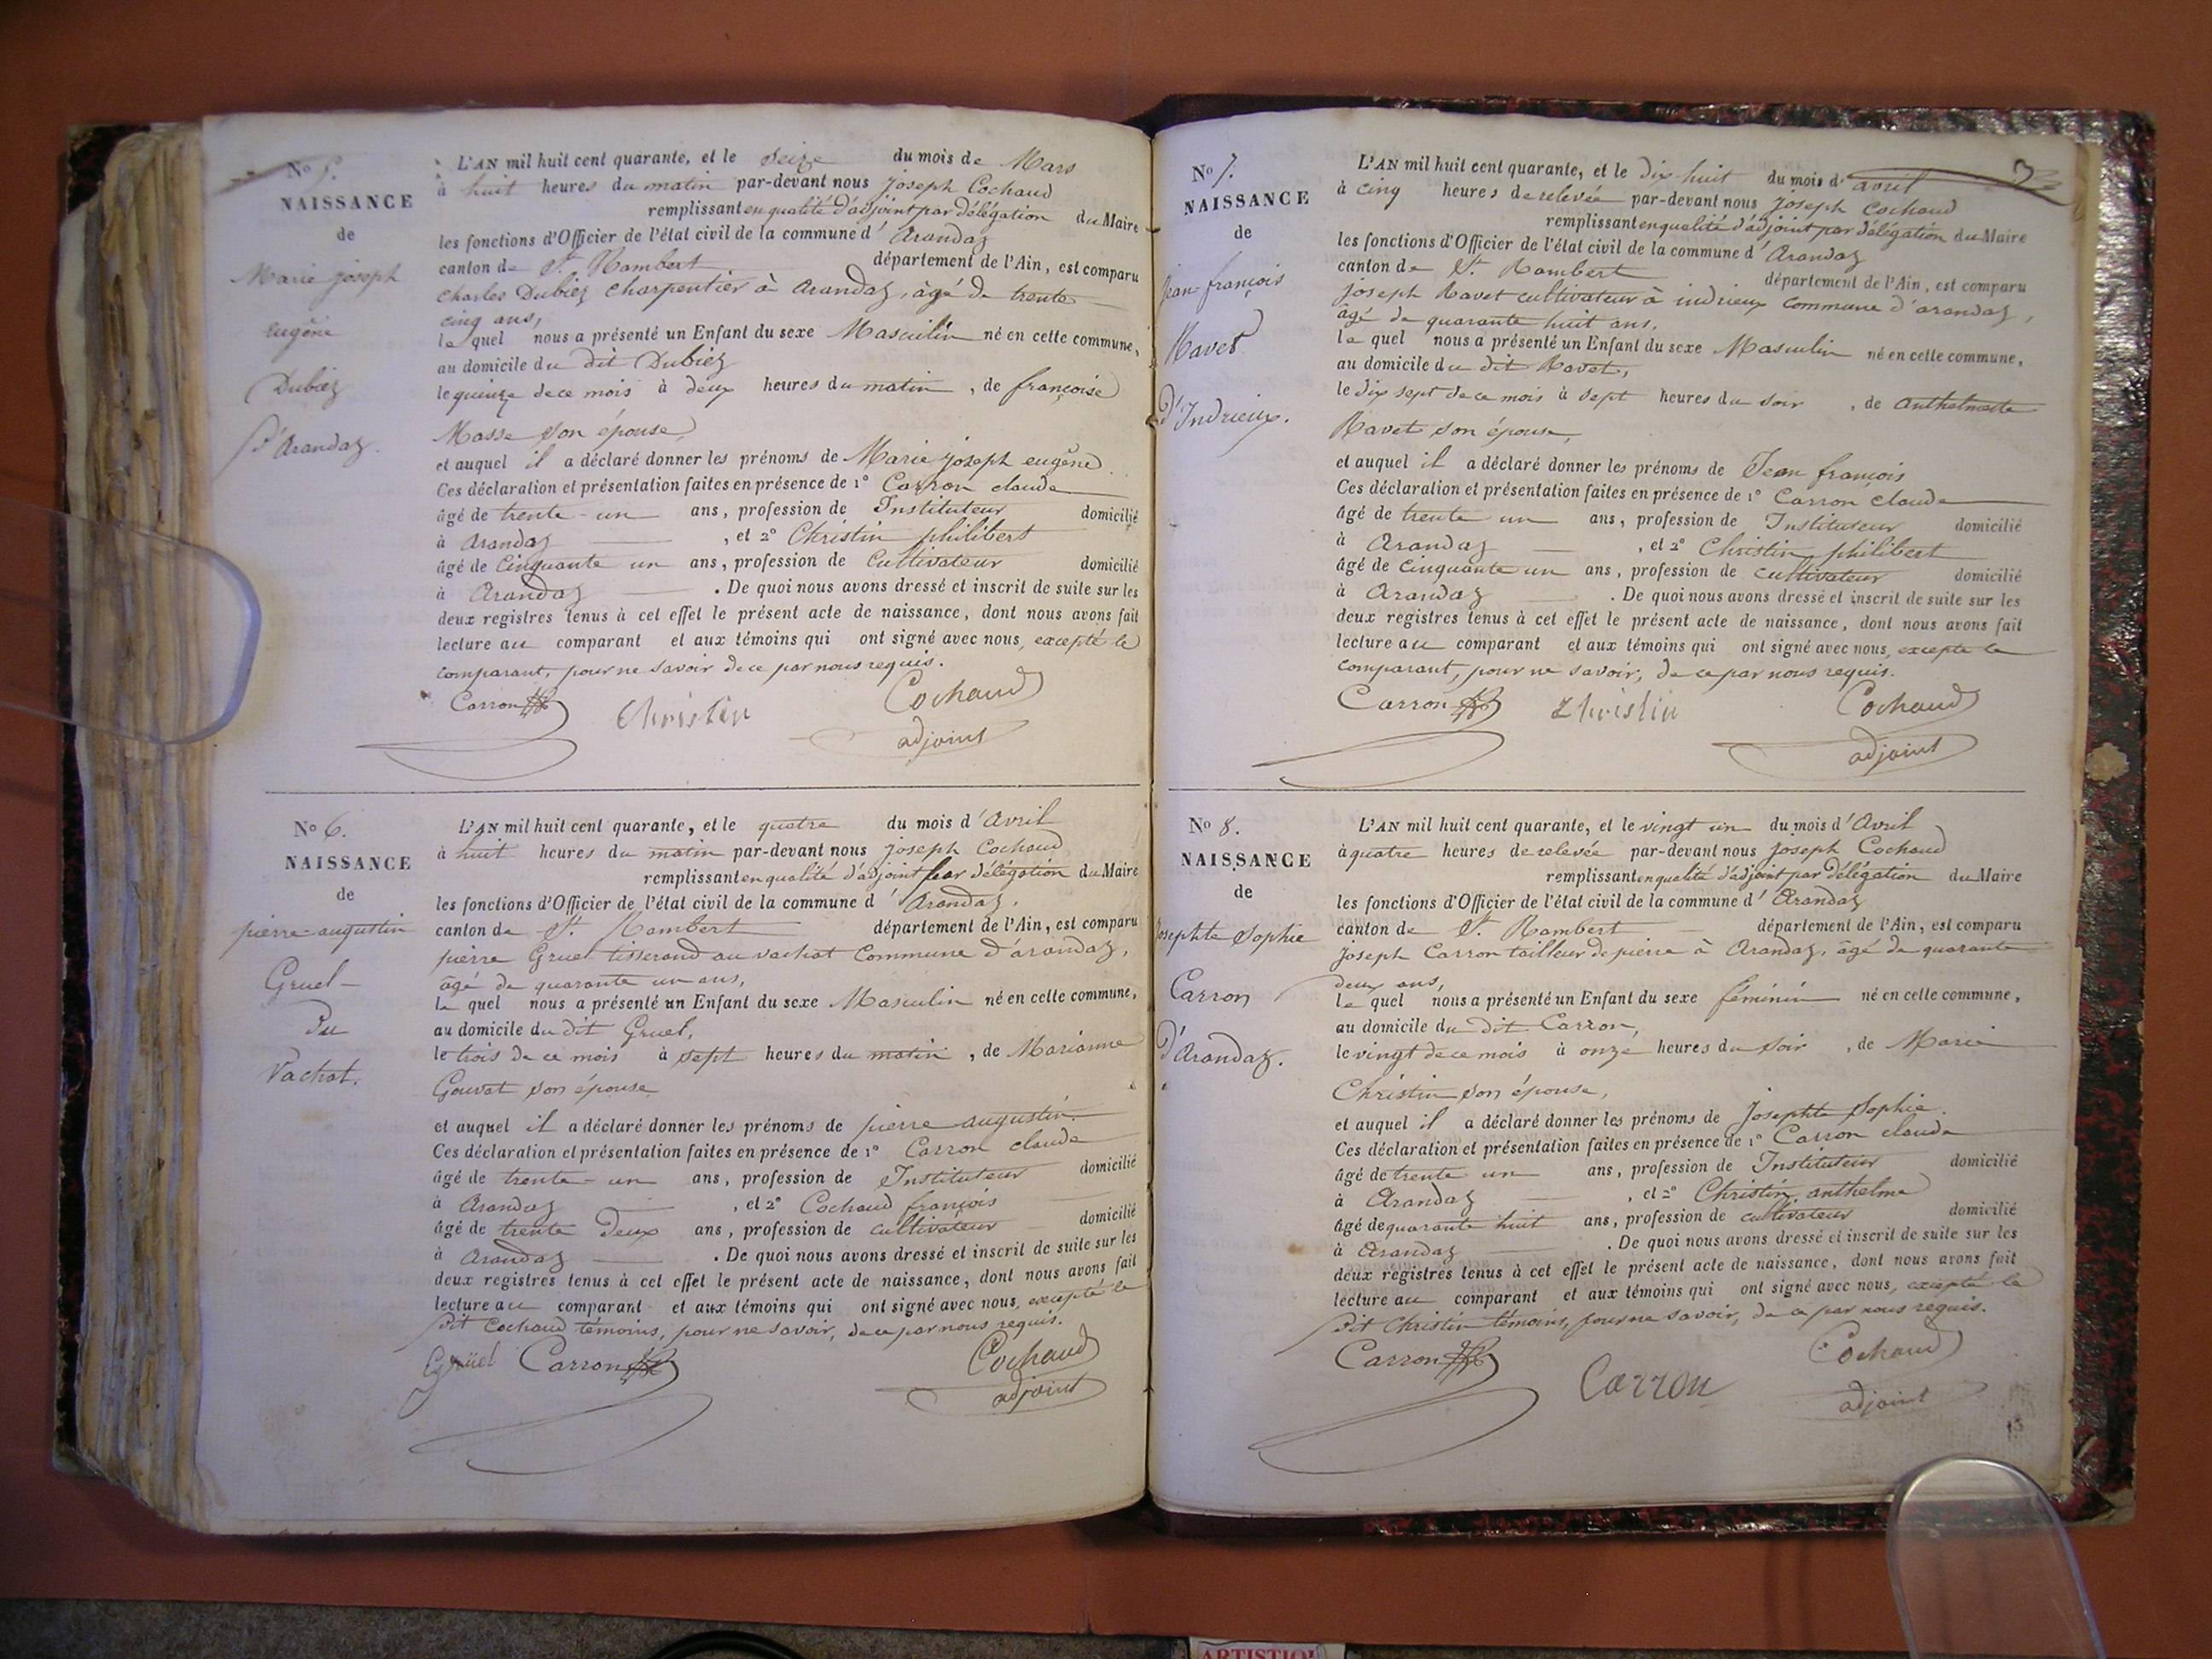 No 5.
NAISSANCE
de
Marie joseph
eugène
Dubiez
d'Arandaz.
L'AN mil huit cent quarante, et le Seize du mois de Mars
à huit heures du matin par-devant nous joseph Cochaud
remplissant en qualité d'adjoint par délégation du Maire
les fonctions d'Officier de l'état civil de la commune d'Arandaz
canton de St. Rambert département de l'Ain, est comparu
Charles Dubiez Charpentier à Arandaz, âgé de trente
cinq ans,
le quel nous a présenté un Enfant du sexe Masculin né en cette commune,
au domicile du dit Dubiez
le quinze de ce mois à deux heures du matin, de françoise
Masse son épouse,
et auquel il a déclaré donner les prénoms de Marie joseph eugène.
Ces déclaration et présentation faites en présence de 1° Carron claude
âgé de trente-un ans, profession de Instituteur domicilié
à Arandaz, et 2° Christin philibert
âgé de Cinquante un ans, profession de Cultivateur domicilié
à Arandaz. De quoi nous avons dressé et inscrit de suite sur les
deux registres tenus à cet effet le présent acte de naissance, dont nous avons fait
lecture au comparant et aux témoins qui ont signé avec nous, excepté le
comparant, pour ne savoir de ce par nous requis.
Carron Christin Cochaud
adjoint
No 6.
NAISSANCE
de
pierre-augustin
Gruel
Du
Vachat.
L'AN mil huit cent quarante, et le quatre du mois d'Avril
à huit heures du matin par-devant nous joseph Cochaud
remplissant en qualité d'adjoint par délégation du Maire
les fonctions d'Officier de l'état civil de la commune d'Arandaz.
canton de St. Rambert département de l'Ain, est comparu
pierre Gruel tisserand au vachat Commune d'arandaz,
âgé de quarante un ans,
le quel nous a présenté un Enfant du sexe Masculin né en cette commune,
au domicile du dit Gruel,
le trois de ce mois à sept heures du matin, de Marianne
Gouvat son épouse
et auquel il a déclaré donner les prénoms de pierre augustin.
Ces déclaration et présentation faites en présence de 1° Carron claude
âgé de trente-un ans, profession de Instituteur domicilié
à Arandaz, et 2° Cochaud françois
âgé de trente deux ans, profession de cultivateur domicilié
à Arandaz. De quoi nous avons dressé et inscrit de suite sur les
deux registres tenus à cet effet le présent acte de naissance, dont nous avons fait
lecture au comparant et aux témoins qui ont signé avec nous, excepté le
dit Cochaud témoins, pour ne savoir, de ce par nous requis.
Grüel Carron Cochaud
adjoint
No 7.
NAISSANCE
de
jean-françois
Ravet
d'Indrieux.
L'AN mil huit cent quarante, et le dix-huit du mois d'avril
à cinq heures de relevée par-devant nous joseph cochaud
remplissant en qualité d'adjoint par délégation du Maire
les fonctions d'Officier de l'état civil de la commune d'Arandaz
canton de St. Rambert département de l'Ain, est comparu
joseph Ravet cultivateur à indrieux commune d'arandaz,
âgé de quarante huit ans,
le quel nous a présenté un Enfant du sexe Masculin né en cette commune,
au domicile du dit Ravet,
le dix sept de ce mois à sept heures du soir, de anthelmette
Ravet son épouse,
et auquel il a déclaré donner les prénoms de Jean françois
Ces déclaration et présentation faites en présence de 1° Carron claude
âgé de trente un ans, profession de Instituteur domicilié
à Arandaz, et 2° Christin philibert
âgé de Cinquante un ans, profession de cultivateur domicilié
à Arandaz. De quoi nous avons dressé et inscrit de suite sur les
deux registres tenus à cet effet le présent acte de naissance, dont nous avons fait
lecture au comparant et aux témoins qui ont signé avec nous, excepté le
comparant, pour ne savoir, de ce par nous requis.
Carron Christin Cochaud
adjoint
No 8.
NAISSANCE
de
Josephte Sophie
Carron
d'Arandaz.
L'AN mil huit cent quarante, et le vingt un du mois d'Avril
à quatre heures de relevée par-devant nous joseph Cochaud
remplissant en qualité d'adjoint par délégation du Maire
les fonctions d'Officier de l'état civil de la commune d'Arandaz
canton de St. Rambert département de l'Ain, est comparu
joseph Carron tailleur de pierre à Arandaz, âgé de quarante
deux ans,
le quel nous a présenté un Enfant du sexe féminin né en cette commune,
au domicile du dit Carron,
le vingt de ce mois à onze heures du soir, de Marie
Christin son épouse,
et auquel il a déclaré donner les prénoms de Josephte Sophie.
Ces déclaration et présentation faites en présence de 1° Carron claude
âgé de trente un ans, profession de Instituteur domicilié
à Arandaz, et 2° Christin anthelme
âgé de quarante huit ans, profession de cultivateur domicilié
à Arandaz. De quoi nous avons dressé et inscrit de suite sur les
deux registres tenus à cet effet le présent acte de naissance, dont nous avons fait
lecture au comparant et aux témoins qui ont signé avec nous, excepté le
dit Christin témoins, pour ne savoir, de ce par nous requis.
Carron Carron Cochaud
adjoint